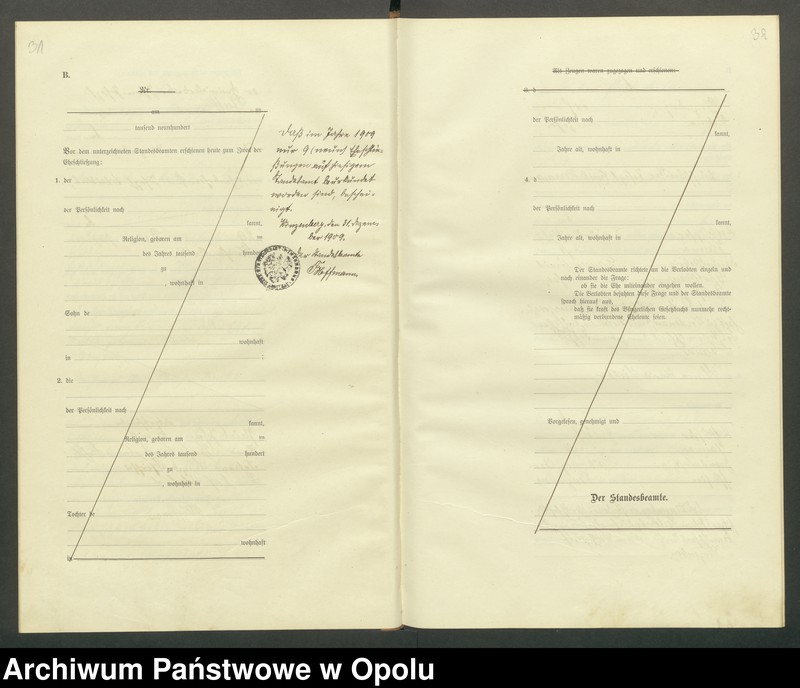 31
B.
Nr.
am ten
tausend neunhundert
Vor dem unterzeichneten Standesbeamten erschienen heute zum Zweck der
Eheschließung:
1. der
der Persönlichkeit nach
kannt,
Religion, geboren am ten
des Jahres tausend hundert
zu
, wohnhaft in
Sohn de
wohnhaft
in ;
2. die
der Persönlichkeit nach
kannt,
Religion, geboren am ten
des Jahres tausend hundert
zu
, wohnhaft in
Tochter de
wohnhaft
in
Daß im Jahre 1909
nur 9 (neun) Eheschlie-
ßungen auf hiesigem
Standesamt beurkundet
worden sind, beschei-
nigt.
den 31. Dezem-
ber 1909.
Der Standesbeamte
Hoffmann
32
Als Zeugen waren zugezogen und erschienen:
3. d
der Persönlichkeit nach
kannt,
Jahre alt, wohnhaft in
4. d
der Persönlichkeit nach
kannt,
Jahre alt, wohnhaft in
Der Standesbeamte richtete an die Verlobten einzeln und
nach einander die Frage:
ob sie die Ehe miteinander eingehen wollen.
Die Verlobten bejahten diese Frage und der Standesbeamte
sprach hierauf aus,
daß sie kraft des Bürgerlichen Gesetzbuchs nunmehr recht-
mäßig verbundene Eheleute seien.
Vorgelesen, genehmigt und
Der Standesbeamte.
Archiwum Państwowe w Opolu